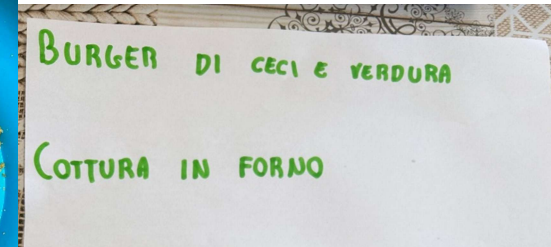 BURGER DI CECI E VERDURA
COTTURA IN FORNO